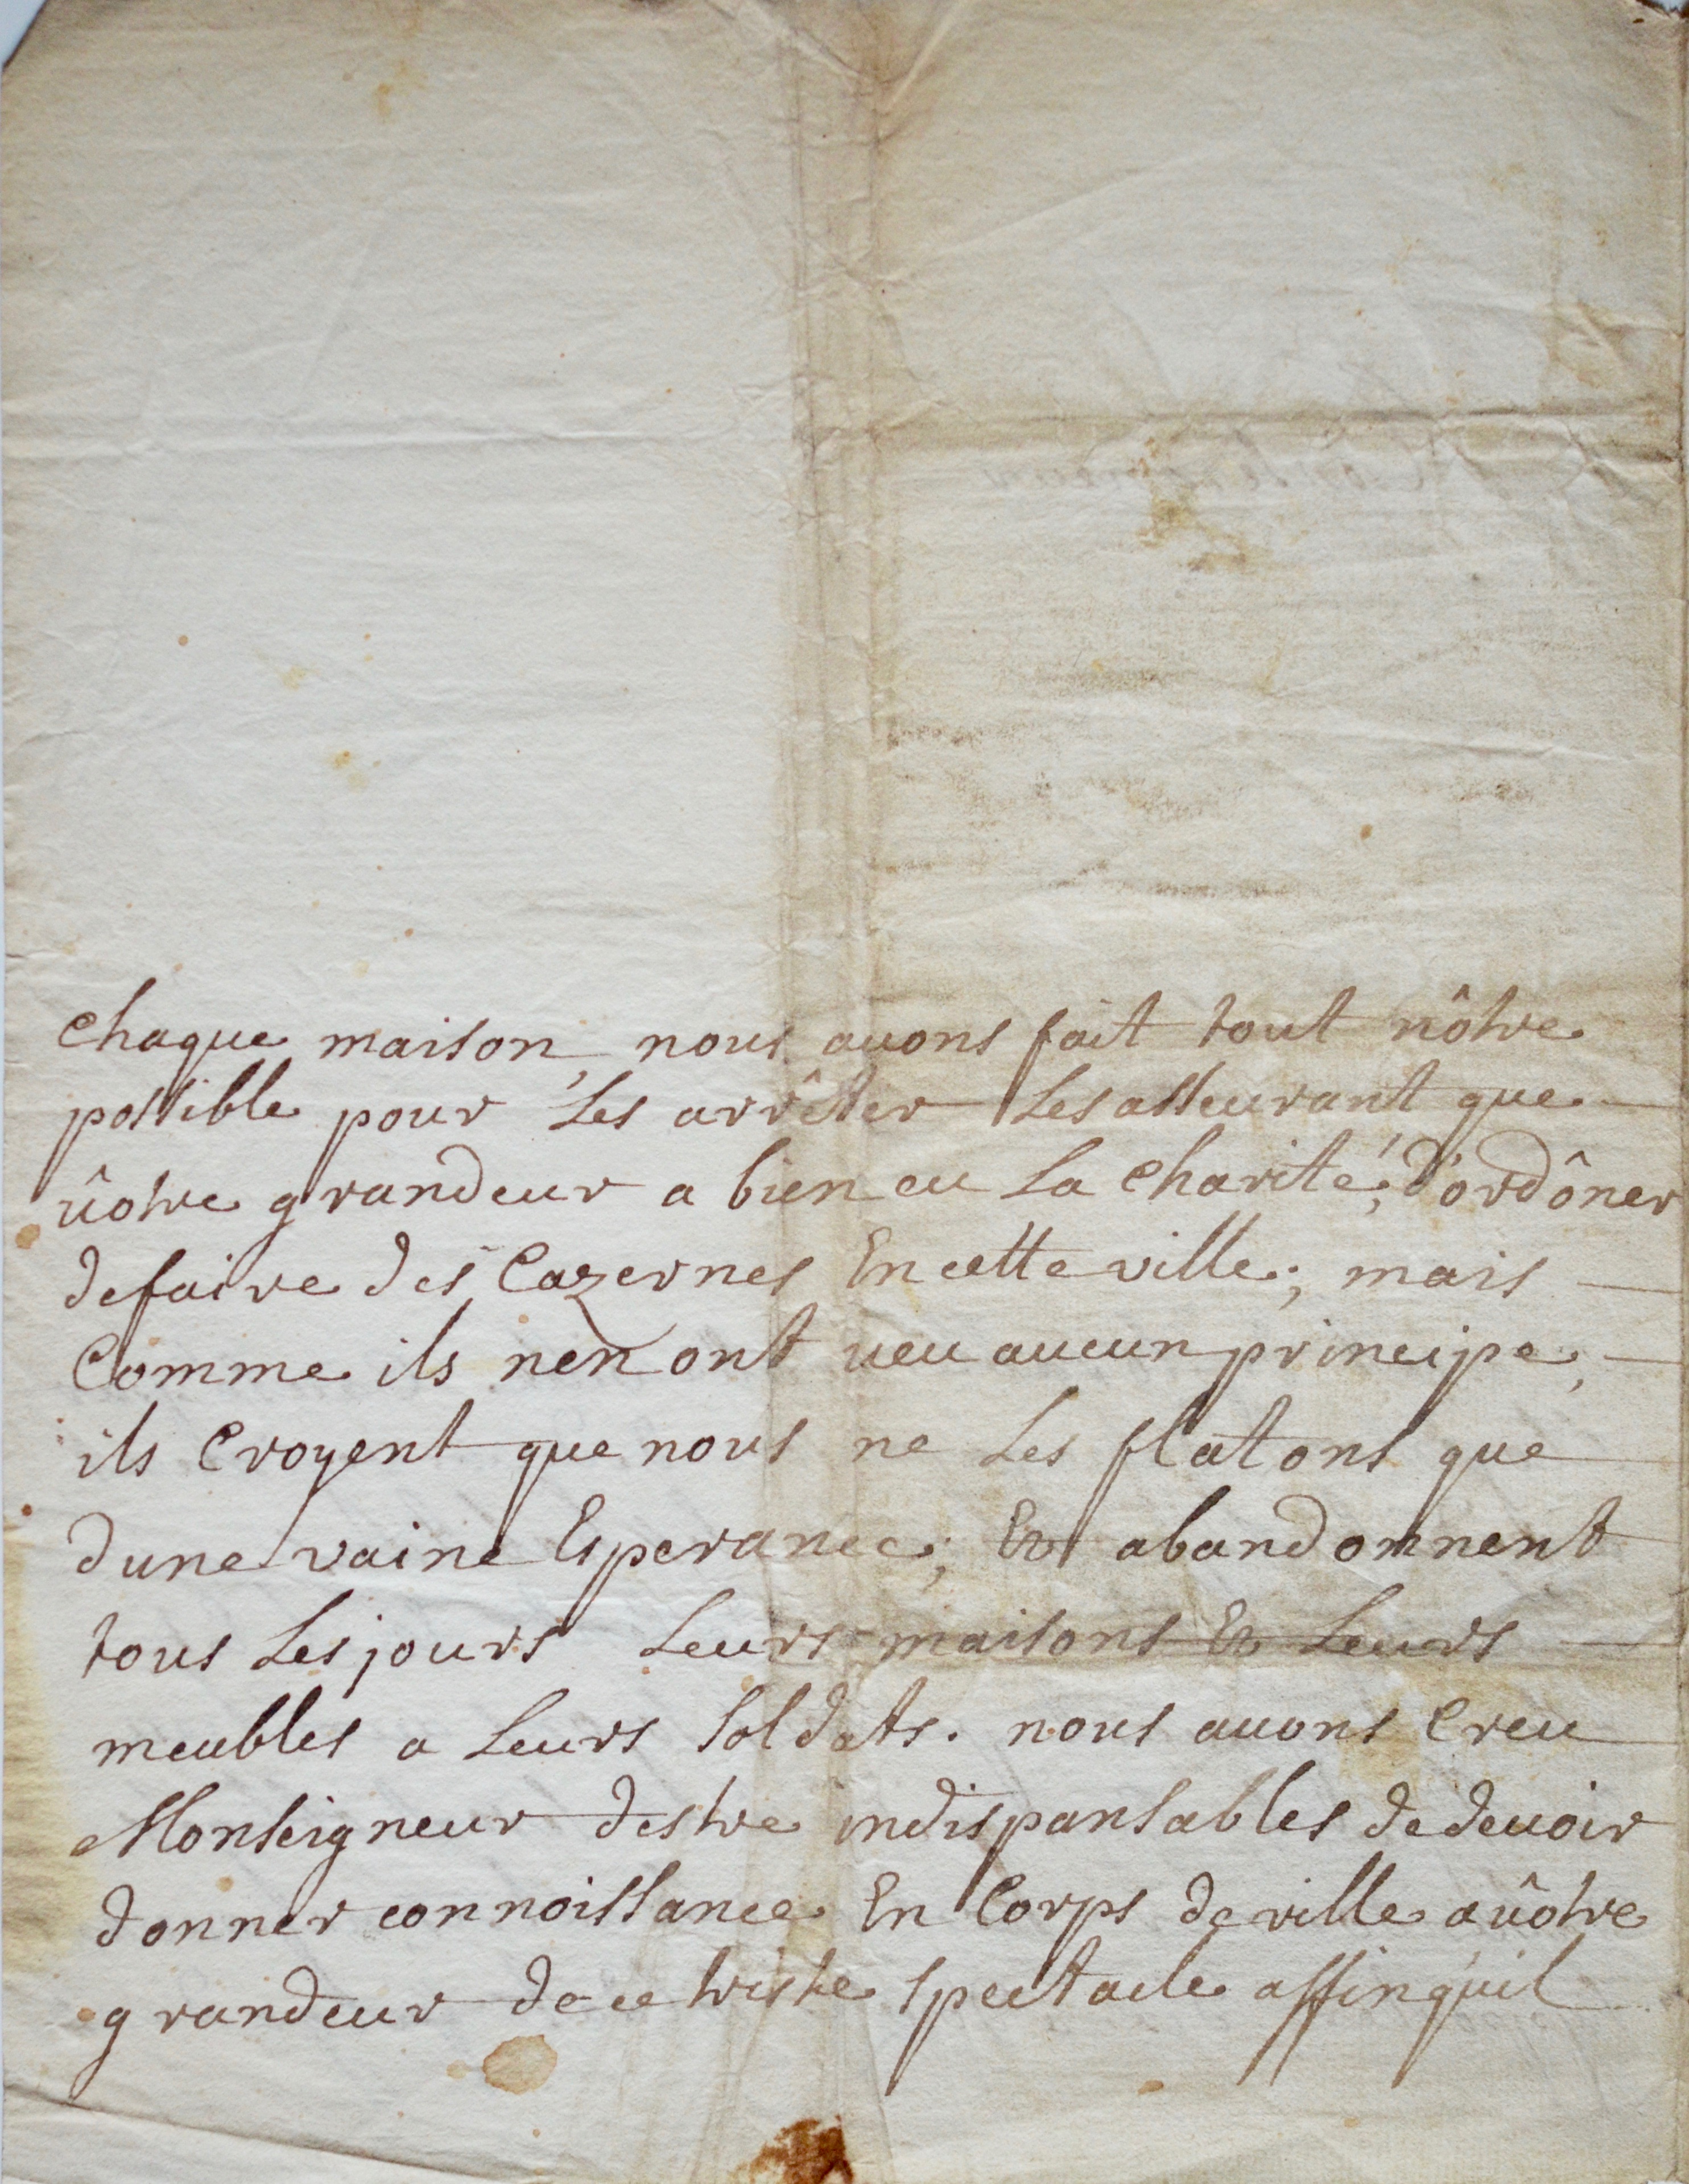 chaque maison, nous auons fait tout nôtre
possible pour Les arrêter Les asseurant que
uôtre grandeur a bien eu La charité, d'ordôner
defaire des Cazernes En cette ville; mais
Comme ils nen ont ueu aucun principe,
ils Croyent que nous ne Les flatons que
dune vaine Esperance; Et abandonnent
tous Les jours Leurs maisons Et Leurs
meubles a Leurs Soldats. nous auons Creu
Monseigneur destre indispansables dedeuoir
donner connoissance En Corps de ville a uôtre
grandeur de ce triste spectacle affinquil